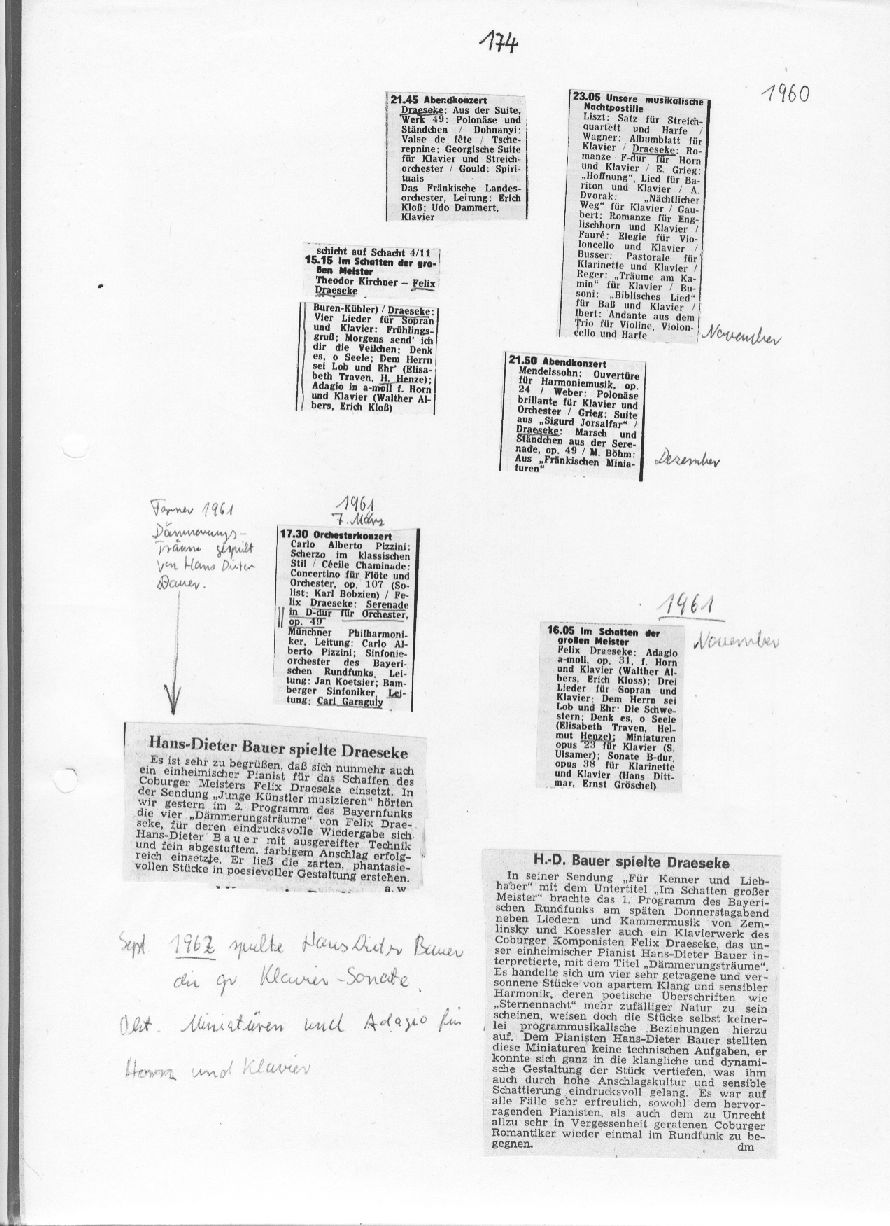 174
1960
21.45 Abendkonzert
Draeseke: Aus der Suite,
Werk 49: Polonäse und
Ständchen / Dohnanyi:
Valse de fête / Tsche-
repnine: Georgische Suite
für Klavier und Streich-
orchester / Gould: Spiri-
tuals
Das Fränkische Landes-
orchester, Leitung: Erich
Kloß; Udo Dammert,
Klavier
23.05 Unsere musikalische
Nachtpostille
Liszt: Satz für Streich-
quartett und Harfe /
Wagner: Albumblatt für
Klavier / Draeseke: Ro-
manze F-dur für Horn
und Klavier / E. Grieg:
„Hoffnung", Lied für Ba-
riton und Klavier / A.
Dvorak: „Nächtlicher
Weg" für Klavier / Gau-
bert: Romanze für Eng-
lischhorn und Klavier /
Fauré: Elegie für Vio-
loncello und Klavier /
Busser: Pastorale für
Klarinette und Klavier /
Reger: „Träume am Ka-
min" für Klavier / Bu-
soni: „Biblisches Lied"
für Baß und Klavier /
Ibert: Andante aus dem
Trio für Violine, Violon-
cello und Harfe
November
schicht auf Schacht 4/11
15.15 Im Schatten der gro-
ßen Meister
Theodor Kirchner – Felix
Draeseke
Buren-Kühler) / Draeseke:
Vier Lieder für Sopran
und Klavier: Frühlings-
gruß; Morgens send' ich
dir die Veilchen; Denk
es, o Seele; Dem Herrn
sei Lob und Ehr' (Elisa-
beth Traven, H. Henze);
Adagio in a-moll f. Horn
und Klavier (Walther Al-
bers, Erich Kloß)
21.50 Abendkonzert
Mendelssohn: Ouvertüre
für Harmoniemusik, op.
24 / Weber: Polonäse
brillante für Klavier und
Orchester / Grieg: Suite
aus „Sigurd Jorsalfar" /
Draeseke: Marsch und
Ständchen aus der Sere-
nade, op. 49 / M. Böhm:
Aus „Fränkischen Minia-
turen"
Dezember
1961
Dämmerungs-
Träume gespielt
von Hans Dieter
Bauer.
1961
7. März
17.30 Orchesterkonzert
Carlo Alberto Pizzini:
Scherzo im klassischen
Stil / Cécile Chaminade:
Concertino für Flöte und
Orchester, op. 107 (So-
list: Karl Bobzien) / Fe-
lix Draeseke: Serenade
in D-dur für Orchester,
op. 49
Münchner Philharmoni-
ker, Leitung: Carlo Al-
berto Pizzini; Sinfonie-
orchester des Bayeri-
schen Rundfunks, Lei-
tung: Jan Koetsier; Bam-
berger Sinfoniker, Lei-
tung: Carl Garaguly
1961
November
16.05 Im Schatten der
großen Meister
Felix Draeseke: Adagio
a-moll, op. 31, f. Horn
und Klavier (Walther Al-
bers, Erich Kloss); Drei
Lieder für Sopran und
Klavier: Dem Herrn sei
Lob und Ehr; Die Schwe-
stern; Denk es, o Seele
(Elisabeth Traven, Hel-
mut Henze); Miniaturen
opus 23 für Klavier (S.
Ulsamer); Sonate B-dur,
opus 38 für Klarinette
und Klavier (Hans Ditt-
mar, Ernst Gröschel)
Hans-Dieter Bauer spielte Draeseke
Es ist sehr zu begrüßen, daß sich nunmehr auch
ein einheimischer Pianist für das Schaffen des
Coburger Meisters Felix Draeseke einsetzt. In
der Sendung „Junge Künstler musizieren" hörten
wir gestern im 2. Programm des Bayernfunks
die vier „Dämmerungsträume" von Felix Drae-
seke, für deren eindrucksvolle Wiedergabe sich
Hans-Dieter Bauer mit ausgereifter Technik
und fein abgestuftem, farbigem Anschlag erfolg-
reich einsetzte. Er ließ die zarten, phantasie-
vollen Stücke in poesievoller Gestaltung erstehen.
a. w
H.-D. Bauer spielte Draeseke
In seiner Sendung „Für Kenner und Lieb-
haber" mit dem Untertitel „Im Schatten großer
Meister" brachte das 1. Programm des Bayeri-
schen Rundfunks am späten Donnerstagabend
neben Liedern und Kammermusik von Zem-
linsky und Koessler auch ein Klavierwerk des
Coburger Komponisten Felix Draeseke, das un-
ser einheimischer Pianist Hans-Dieter Bauer in-
terpretierte, mit dem Titel „Dämmerungsträume".
Es handelte sich um vier sehr getragene und ver-
sonnene Stücke von apartem Klang und sensibler
Harmonik, deren poetische Überschriften wie
„Sternennacht" mehr zufälliger Natur zu sein
scheinen, weisen doch die Stücke selbst keiner-
lei programmusikalische Beziehungen hierzu
auf. Dem Pianisten Hans-Dieter Bauer stellten
diese Miniaturen keine technischen Aufgaben, er
konnte sich ganz in die klangliche und dynami-
sche Gestaltung der Stück vertiefen, was ihm
auch durch hohe Anschlagskultur und sensible
Schattierung eindrucksvoll gelang. Es war auf
alle Fälle sehr erfreulich, sowohl dem hervor-
ragenden Pianisten, als auch dem zu Unrecht
allzu sehr in Vergessenheit geratenen Coburger
Romantiker wieder einmal im Rundfunk zu be-
gegnen.
dm
Sept. 1962 spielte Hans Dieter Bauer
die gr Klavier-Sonate.
Okt. Miniatüren und Adagio für
und Klavier